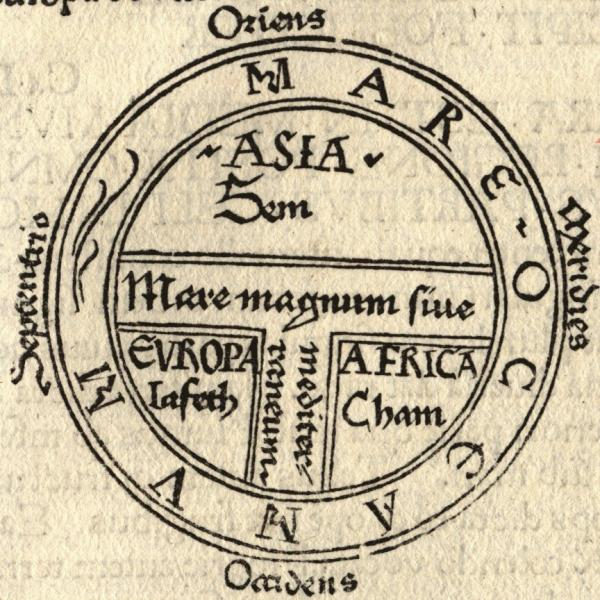 Oriens
MARE OCEANVM
Septentrio
Meridies
ASIA
Sem
Mare magnum ſiue
mediter
raneum
EVROPA
Iafeth
AFRICA
Cham
Occidens